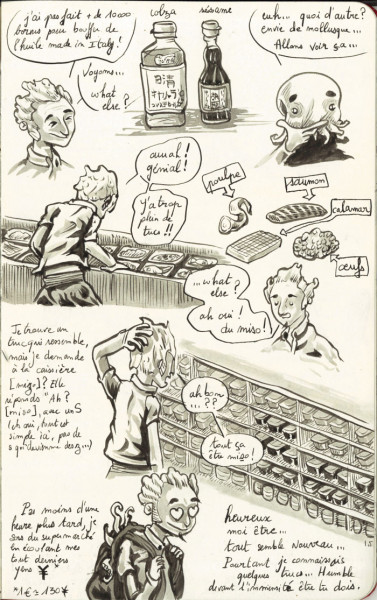 j'ai pas fait + de 10000
bornes pour bouffer de
l'huile made in Italy!
Voyons...
what
else?
colza
sésame
日清
キャノーラ
euh... quoi d'autre?
envie de mollusque...
Allons voir ça...
ouuah!
génial!
Y'a trop
plein de
trucs!!
poulpe
saumon
calamar
œufs
...what
else?
ah oui!
du miso!
Je trouve un
truc qui ressemble,
mais je demande
à la caissière
[mizo]? Elle
réponds "Ah?
[miso], avec un S
(eh oui, tout est
simple ici, pas de
s qui deviennne des z...)
ah bon
...??
tout ça
être miso!
Pas moins d'une
heure plus tard, je
sors du supermarché
en écoutant mes
tout derniers
yens ¥
*1€ = 130¥
Heureux
moi être...
tout semble nouveau...
Pourtant je connaissais
quelques trucs... Humble
devant l'immensité être tu dois.
15